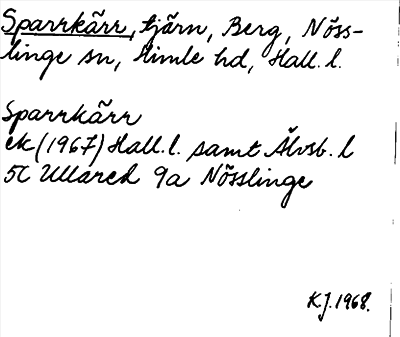 Sparrkärr, tjärn, Berg, Nöss-
linge sn, Himle hd, Hall. l.
Sparrkärr
ek (1967) Hall. l. samt Älvsb. l
5C Ullared 9a Nösslinge
K.J. 1968.